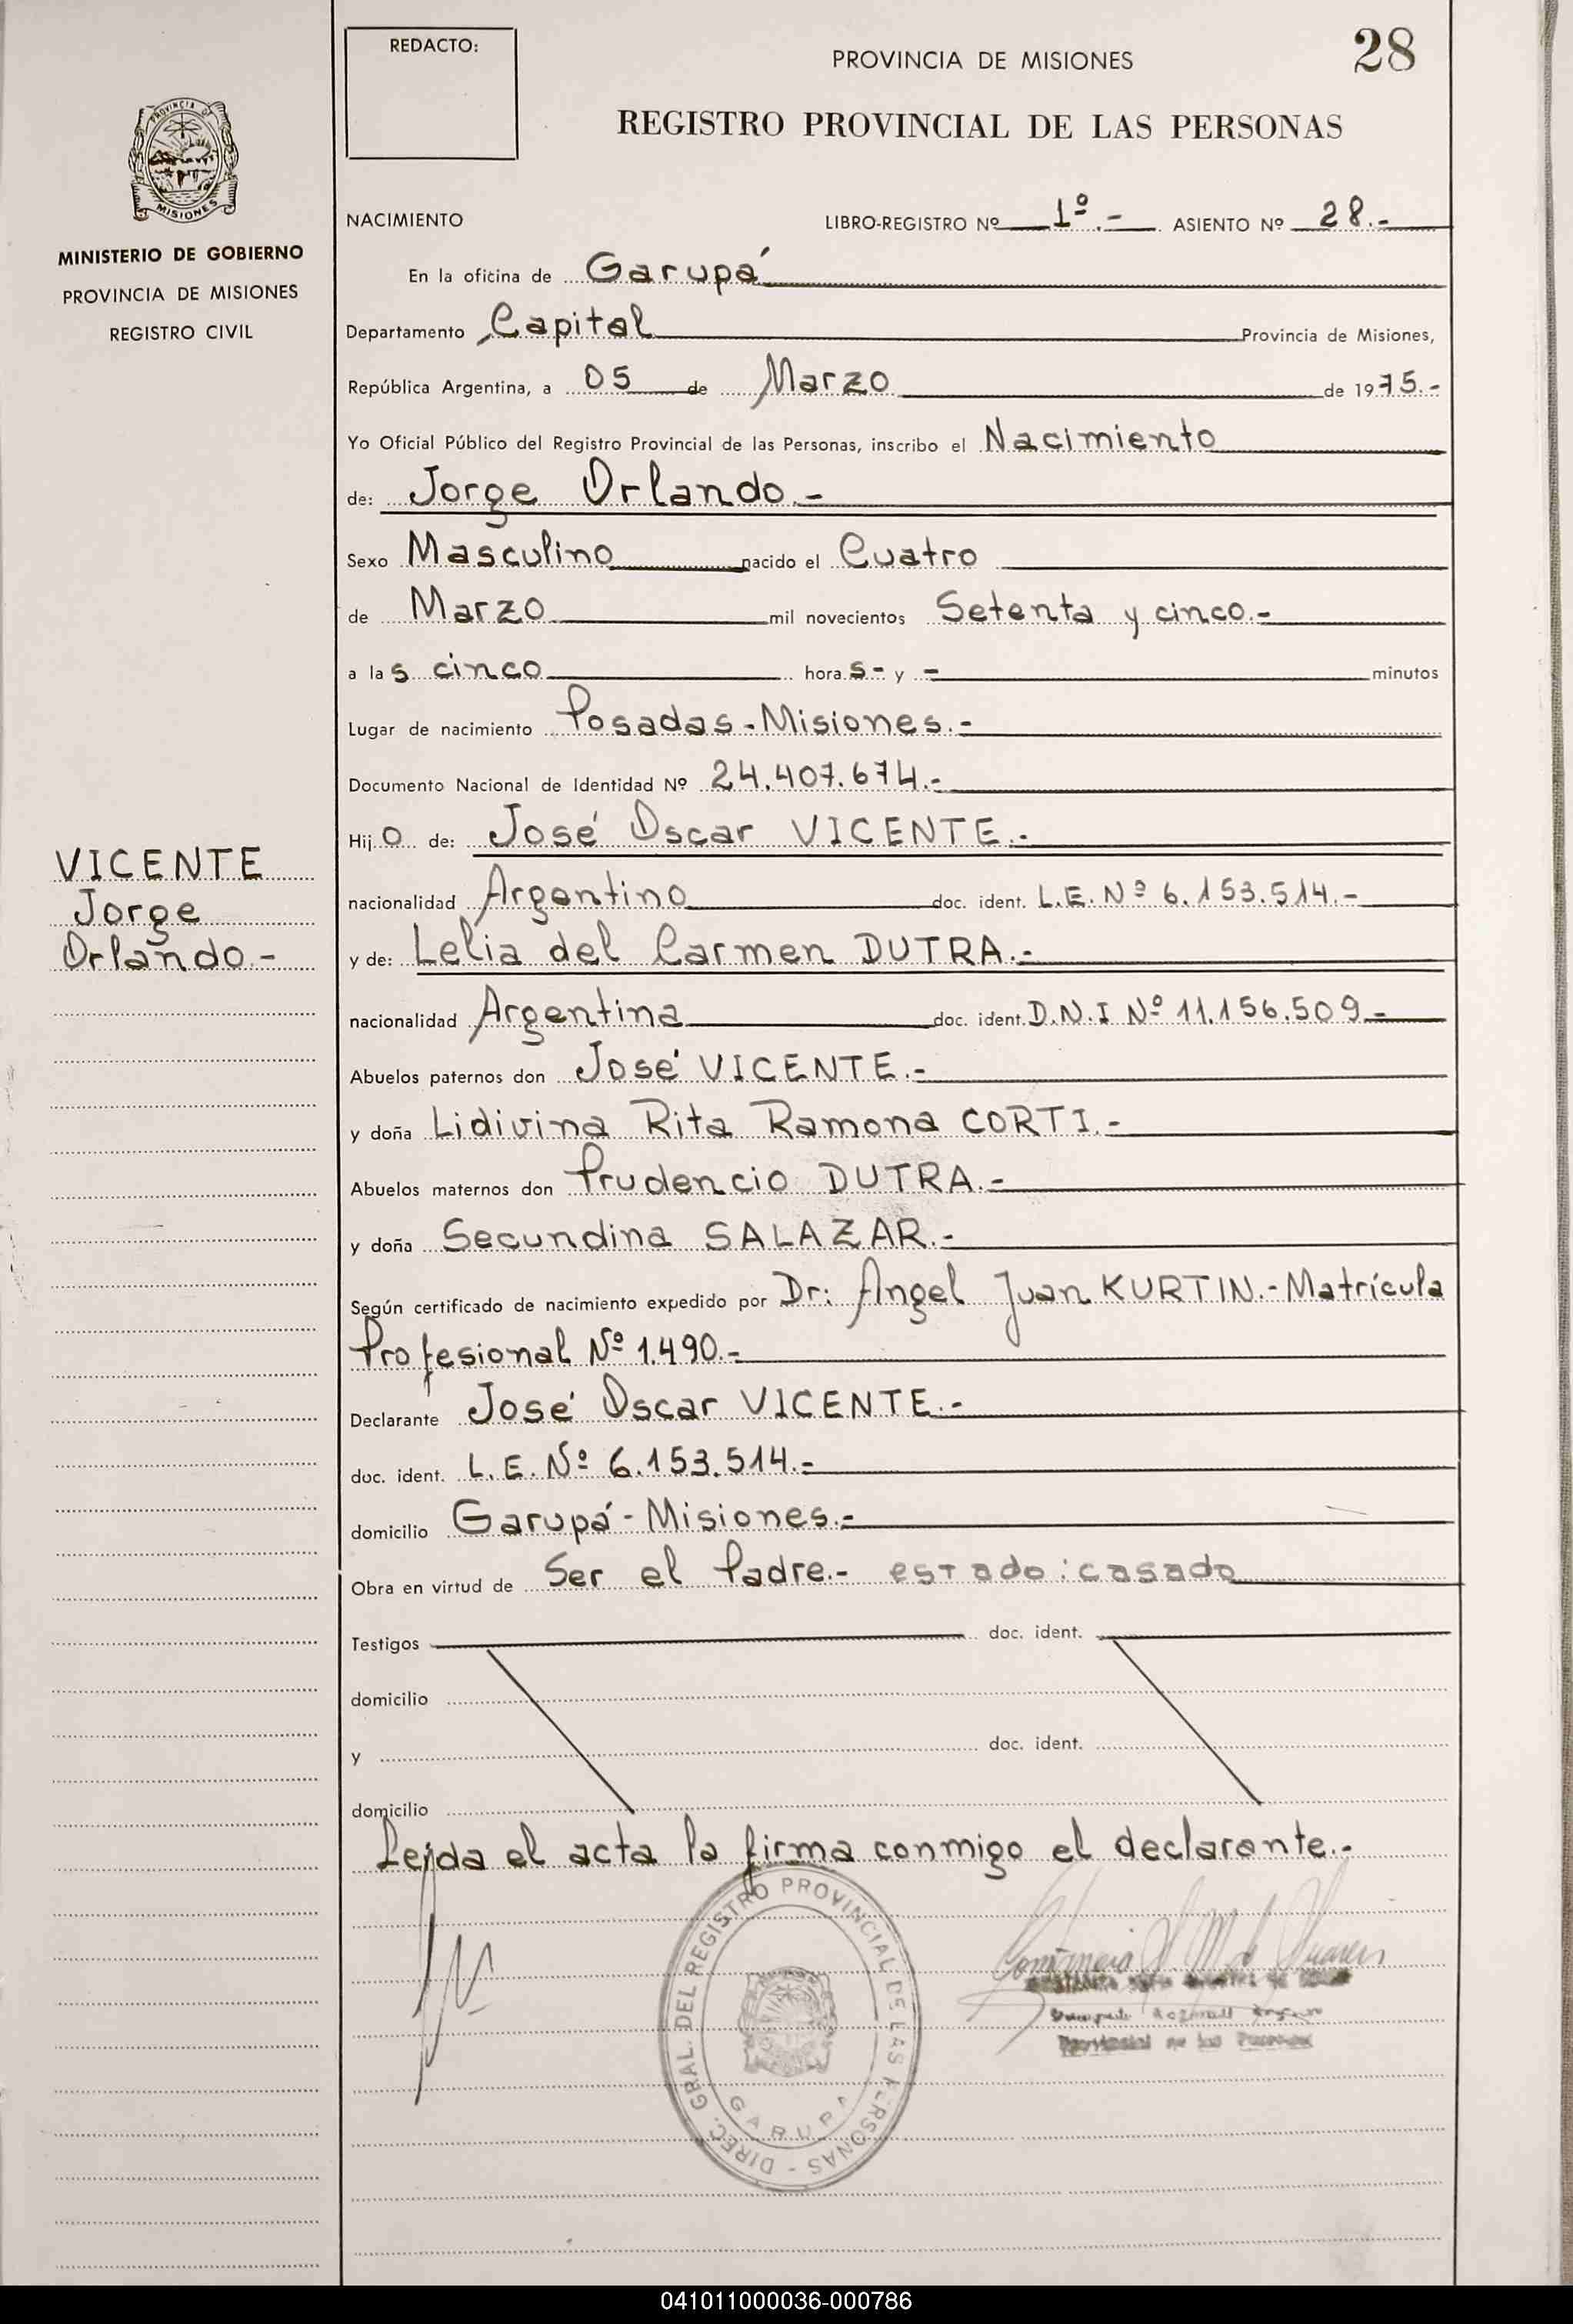 REDACTO:
PROVINCIA DE MISIONES
28
REGISTRO PROVINCIAL DE LAS PERSONAS
PROVINCIA DE
MISIONES
MINISTERIO DE GOBIERNO
PROVINCIA DE MISIONES
REGISTRO CIVIL
NACIMIENTO LIBRO-REGISTRO Nº 1º.- ASIENTO Nº 28.-
En la oficina de Garupá
Departamento Capital Provincia de Misiones,
República Argentina, a 05 de Marzo de 1975.-
Yo Oficial Público del Registro Provincial de las Personas, inscribo el Nacimiento
de: Jorge Orlando.-
Sexo Masculino nacido el Cuatro
de Marzo mil novecientos Setenta y cinco.-
a las cinco horas- y - minutos
Lugar de nacimiento Posadas-Misiones.-
Documento Nacional de Identidad Nº 24.407.674.-
Hijo de: José Oscar VICENTE.-
VICENTE
Jorge
Orlando.-
nacionalidad Argentino doc. ident. L.E. Nº 6.153.514.-
y de: Lelia del Carmen DUTRA.-
nacionalidad Argentina doc. ident. D.N.I Nº 11.156.509.-
Abuelos paternos don José VICENTE.-
y doña Lidivina Rita Ramona CORTI.-
Abuelos maternos don Prudencio DUTRA.-
y doña Secundina SALAZAR.-
Según certificado de nacimiento expedido por Dr: Angel Juan KURTIN.-Matrícula
Profesional Nº 1.490.-
Declarante José Oscar VICENTE.-
doc. ident. L.E. Nº 6.153.514.-
domicilio Garupá-Misiones.-
Obra en virtud de Ser el Padre.- estado: casado
Testigos doc. ident.
domicilio
y doc. ident.
domicilio
Leida el acta la firma conmigo el declarante.-
DIREC. GRAL. DEL REGISTRO PROVINCIAL DE LAS PERSONAS -
GARUPA
Provincial de las Personas
041011000036-000786